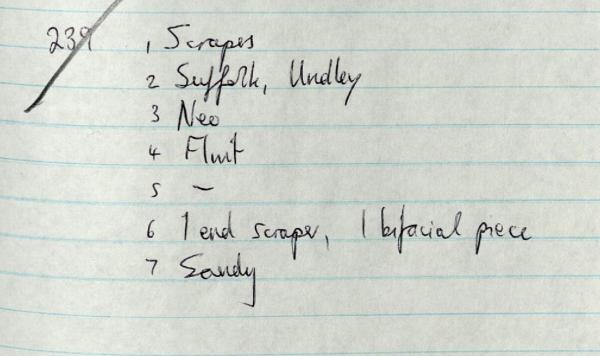 239 1 Scrapers
2 Suffolk, Undley
3 Neo
4 Flint
5 -
6 1 end scraper, 1 bifacial piece
7 Sandy